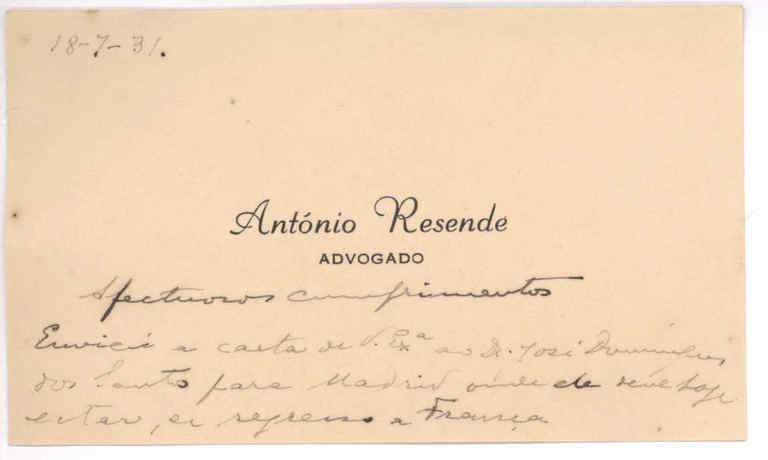 18-7-31.
António Resende
ADVOGADO
Afectuosos cumprimentos
Enviei a carta de V. Exª ao Dr. José Domingues
dos Santos para Madrid onde ele deve hoje
estar, de regresso a França